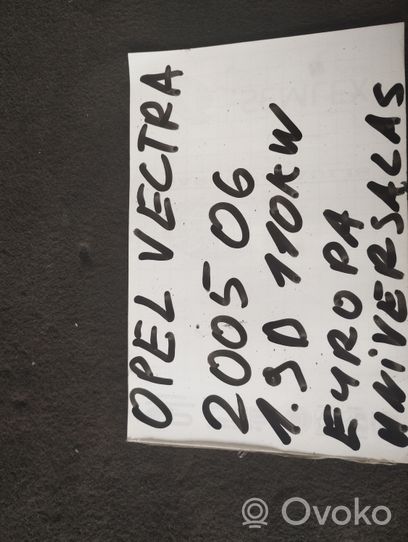 OPEL VECTRA
2005 06
1.9D 110KW
EYROPA
UNiVERSALAS
Ovoko